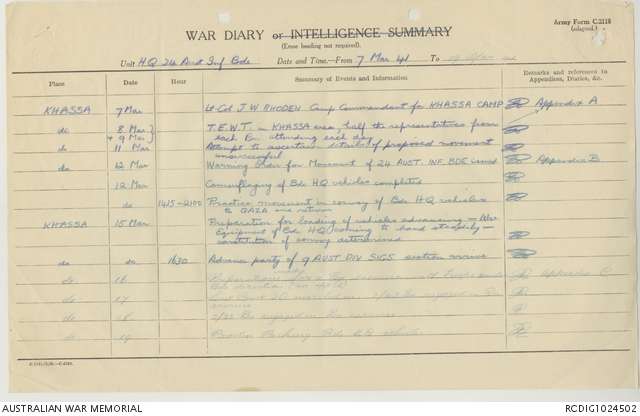 Army Form C.2118
(adapted.)
WAR DIARY or INTELLIGENCE SUMMARY
(Erase heading not required).
Unit H.Q 24 Aust Inf Bde Date and Time—From 7 Mar 41 To
Place Date Hour Summary of Events and Information Remarks and references to Appendices, Diaries, &c.
KHASSA 7 Mar Lt-Col J.W. RHODEN Camp Commandant for KHASSA CAMP Appendix A
do 8 Mar } T.E.W.T. in KHASSA area, half the representatives from
+ 9 Mar } each Bn attending each day
do 11 Mar Attempt to ascertain details of proposed movement
unsuccessful
do 12 Mar Warning Order for Movement of 24 AUST. INF BDE issued Appendix B
12 Mar Camouflaging of Bde HQ vehicles completed
do 1415-2100 Practice movement in convoy of Bde H.Q vehicles
to GAZA and return
KHASSA 15 Mar Preparation for loading of vehicles advancing — Also
Equipment of Bde HQ coming to hand steadily —
constitution of convoy determined
do do 1630 Advance party of 9 AUST DIV SIGS section arrive
do 16
do 17
do 18 Bn engaged in
do 19 Bde vehicles
AUSTRALIAN WAR MEMORIAL
RCDIG1024502